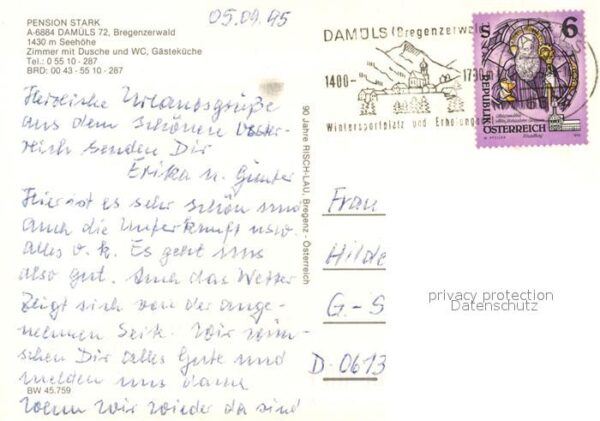 05.09.95
PENSION STARK
A-6884 DAMÜLS 72, Bregenzerwald
1430 m Seehöhe
Zimmer mit Dusche und WC, Gästeküche
Tel.: 0 55 10 - 287
BRD: 00 43 - 55 10 - 287
DAMÜLS (Bregenzerwald
1400-
Wintersportplatz und Erholungs
S 6
REPUBLIK
ÖSTERREICH
Herzliche Urlaubsgrüße
aus dem schönen Öster-
reich senden Dir
Erika u. Günter
Hier ist es sehr schön und
auch die Unterkunft usw.
alles o.k. Es geht uns
also gut. Auch das Wetter
zeigt sich von der ange-
nehmen Seite. Wir wün-
schen Dir alles Gute und
melden uns dann
wenn wir wieder da sind
BW 45.759
90 Jahre RISCH-LAU, Bregenz - Österreich
Frau
Hilde
G.-S
D-0613
privacy protection
Datenschutz